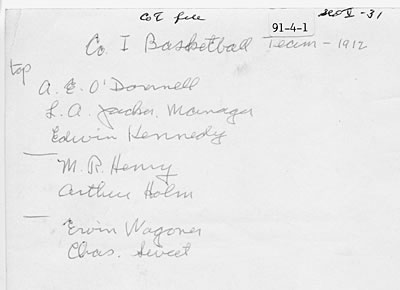 Co I file
91-4-1
Sec I - 31
Co. I Basketball Team - 1912
top
A. E. O'Donnell
L. A. Jacks, Manager
Edwin Kennedy
M. R. Henry
Arthur Holm
Ervin Wagoner
Chas. Sweet